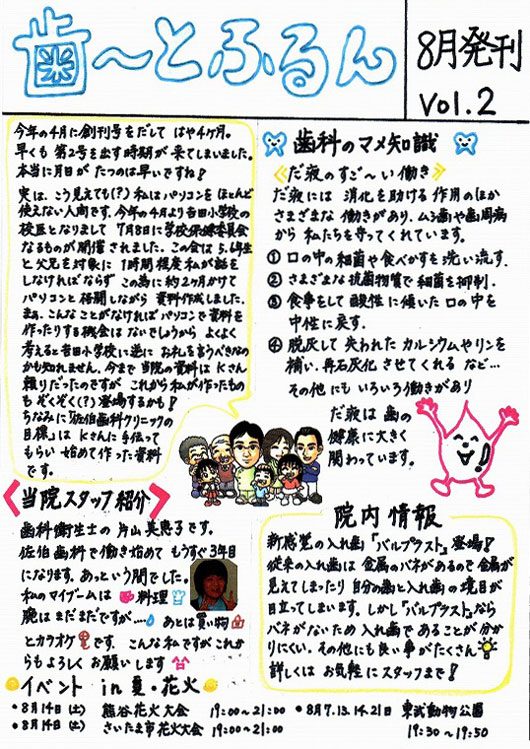 歯〜とふるん
8月発刊
Vol.2
今年の4月に創刊号をだして はや4ヶ月。
早くも 第2号を出す時期が 来てしまいました。
本当に月日が たつのは早いですね!
実は、こう見えても(?)私はパソコンを ほとんど
使えない人間です。今年の4月より吉田小学校の
校医となりまして 7月8日に学校保健委員会
なるものが開催 されました。この会は 5.6年生
と父兄を対象に 1時間程度私が話を
しなければならず この為に 約2ヶ月かけて
パソコンと格闘しながら 資料作成しました。
まぁ、こんなことがなければパソコンで資料を
作ったりする機会は ないでしょうから よくよく
考えると吉田小学校に逆に お礼を言うべきなの
かも知れません。今まで 当院の資料は Kさん
頼りだったのですが これから私が作ったもの
も ぞくぞく(?)登場するかも!
ちなみに「佐伯歯科クリニックの
目標」は Kさんに手伝って
もらい 始めて作った資料
です。
歯科のマメ知識
だ液のすご〜い働き
だ液には 消化を助ける 作用のほか
さまざまな 働きがあり、ムシ歯や歯周病
から 私たちを守ってくれています。
① 口の中の細菌や食べかすを 洗い流す.
② さまざまな抗菌物質で細菌を抑制.
③ 食事をして 酸性に傾いた 口の中を
中性に戻す.
④ 脱灰して 失われた カルシウムやリンを
補い、再石灰化 させてくれる など…
その他にも いろいろ働きがあり
だ液は 歯の
健康に大きく
関わっています。
当院スタッフ紹介
歯科衛生士の 片山 美恵子です。
佐伯歯科で働き始めて もうすぐ3年目
になります。あっという間でした。
私のマイブームは 料理
腕はまだまだですが…
あとは買い物
とカラオケ です。こんな私ですがこれか
らもよろしく お願いします
院内情報
新感覚の入れ歯「バルプラスト」登場!
従来の入れ歯は 金属のバネがあるので 金属が
見えてしまったり 自分の歯と入れ歯の 境目が
目立ってしまいます。しかし「バルプラスト」なら
バネがないため 入れ歯で あることが 分か
りにくい。その他にも良い事がたくさん
詳しくは お気軽に スタッフまで!
イベント in 夏・花火
• 8月14日(土) 熊谷花火大会 19:00〜21:00
• 8月14日(土) さいたま市花火大会 19:00〜21:00
• 8月7.13.14.21日 東武動物公園
19:30〜19:50